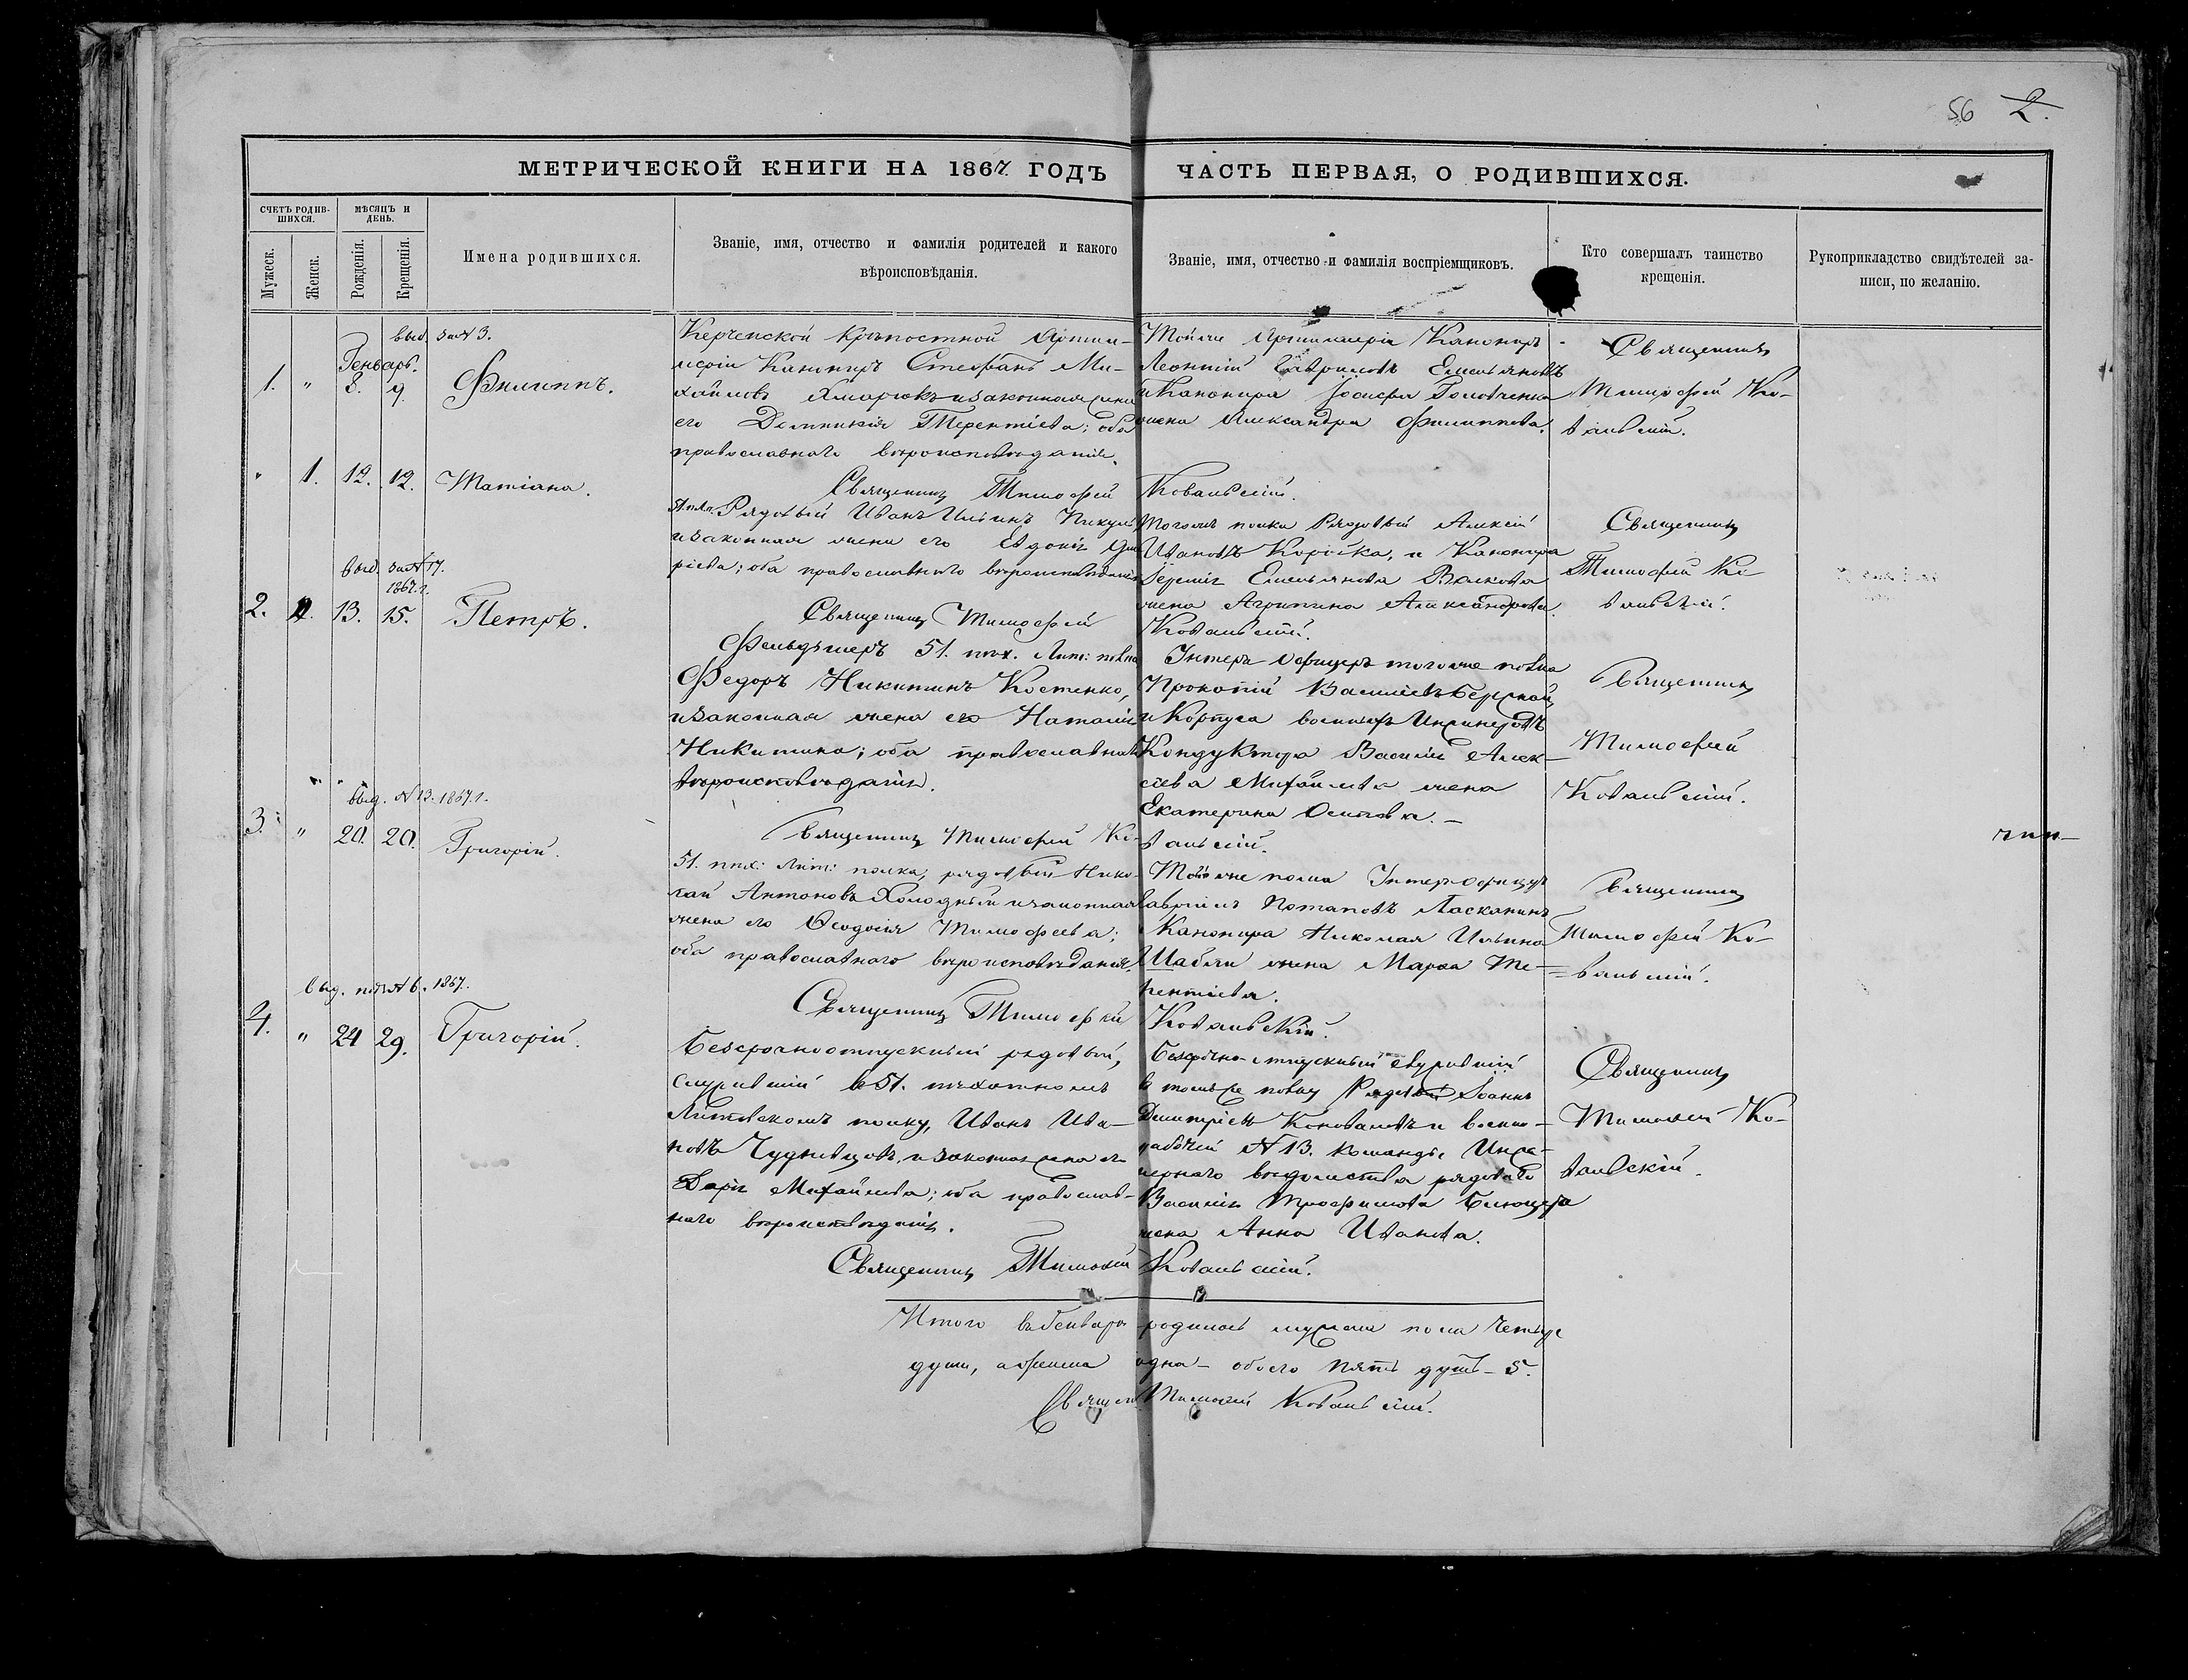 56 2.
МЕТРИЧЕСКОЙ КНИГИ НА 1867 ГОДЪ ЧАСТЬ ПЕРВАЯ, О РОДИВШИХСЯ.
СЧЕТЪ РОДИВ-
ШИХСЯ.
МѢСЯЦЪ И
ДЕНЬ.
Мужеск.
Женск.
Рожденія.
Крещенія.
Имена родившихся.
Званіе, имя, отчество и фамилія родителей и какого
вѣроисповѣданія.
Званіе, имя, отчество и фамилія воспріемщиковъ.
Кто совершалъ таинство
крещенія.
Рукоприкладство свидѣтелей за-
писи, по желанію.
выд. за № 3.
Генварь.
1. " 8. 9. Филиппъ.
Керченской крѣпостной Артил-
леріи Канониръ Стефанъ Ми-
хайловъ и законная жена
его Терентіева; оба
православнаго вѣроисповѣданія.
Тойже Артиллеріи Канониръ
Леонтій Гавриловъ Емельяновъ
и Канонира Іосифа Головченка
жена Александра Филиппова.
Священникъ
Тимофей Ко-
вальскій.
Священникъ Тимофей Ковальскій.
" 1. 12. 12. Татіана.
Рядовый Иванъ Ильинъ Пикуль
и законная жена его Евдокія
оба православнаго вѣроисповѣданія
Тогоже полка Рядовый Алексій
Ивановъ и Канонира
Емельянова Волкова
жена Агрипина Александрова.
Священникъ
Тимофей Ко-
вальскій.
Священникъ Тимофей Ковальскій.
выд. за № 17.
1867 г.
2. 13. 15. Петръ.
Фельдшеръ 51. пѣх. Лит: полка
Федоръ Никитинъ Костенко,
и законная жена его Наталія
Никитина; оба православнаго
вѣроисповѣданія.
Унтеръ-Офицеръ тогоже полка
Прокопій Васильевъ
и Корпуса военныхъ Инженеровъ
Кондуктора Василія Алек-
сѣева Михайлова жена
Екатерина Осипова.
Священникъ
Тимофей
Ковальскій.
Священникъ Тимофей Ко-
вальскій.
выд. № 13. 1867 г.
3. " 20. 20. Григорій.
51. пѣх: Лит: полка, рядовый Нико-
лай Антоновъ Холодный и законная
жена его Ѳеодосія Тимофеева;
оба православнаго вѣроисповѣданія.
Тогоже полка Унтеръ-Офицеръ
Гавріилъ Потаповъ Ласканинъ
Канонира Николая Ильина
Шабли жена Марѳа Те-
рентіева.
Священникъ
Тимофей Ко-
вальскій.
Священникъ Тимофей Ковальскій.
выд. под № 6. 1867.
4. " 24 29. Григорій.
Безсрочноотпускный рядовый,
служившій в 51. пѣхотномъ
Литовскомъ полку, Иванъ Ива-
новъ и законная жена его
Дарія Михайлова; оба православ-
наго вѣроисповѣданія.
Безсрочно-отпускный служившій
в томъ же полку Рядовый Іоаннъ
Димитріевъ Коноваловъ и военно-
рабочей № 13. команды Инже-
нернаго вѣдомства рядоваго
Василія Трофимова
жена Анна Иванова.
Священникъ
Тимофей Ко-
вальскій.
Священникъ Тимофей Ковальскій.
Итого въ Генварѣ родилось мужеска пола четыре
души, а женска одна - обоего пять душъ - 5.
Священ. Тимофей Ковальскій.